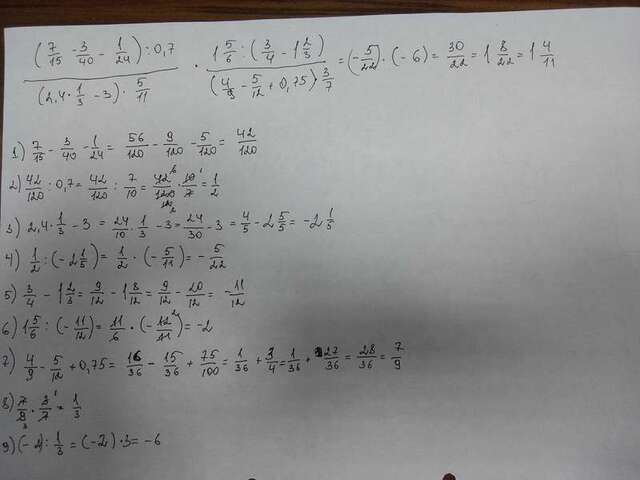 ((7/15 - 3/40 - 1/24) : 0,7) / ((2,4 · 1/3 - 3) · 5/11) · (1 5/6 : (3/4 - 1 2/3)) / ((4/9 - 5/12 + 0,75) · 3/7) = (-5/22) · (-6) = 30/22 = 1 8/22 = 1 4/11
1) 7/15 - 3/40 - 1/24 = 56/120 - 9/120 - 5/120 = 42/120
2) 42/120 : 0,7 = 42/120 : 7/10 = 42/120 · 10/7 = 1/2
3) 2,4 · 1/3 - 3 = 24/10 · 1/3 - 3 = 24/30 - 3 = 4/5 - 2 5/5 = -2 1/5
4) 1/2 : (-2 1/5) = 1/2 · (-5/11) = -5/22
5) 3/4 - 1 2/3 = 9/12 - 1 8/12 = 9/12 - 20/12 = -11/12
6) 1 5/6 : (-11/12) = 11/6 · (-12/11) = -2
7) 4/9 - 5/12 + 0,75 = 16/36 - 15/36 + 75/100 = 1/36 + 3/4 = 1/36 + 27/36 = 28/36 = 7/9
8) 7/9 · 3/7 = 1/3
9) (-2) : 1/3 = (-2) · 3 = -6